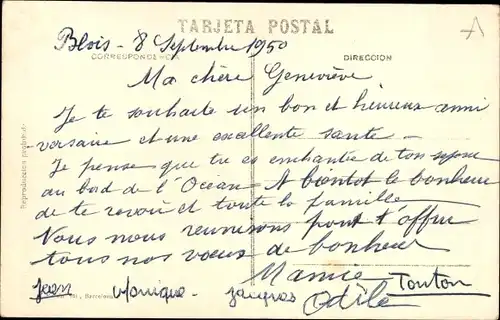 TARJETA POSTAL
Blois - 8 Septembre 1950
CORRESPONDENCIA
DIRECCION
Ma chère Geneviève
Je te souhaite un bon et heureux anni
versaire et une excellente santé -
Je pense que tu es enchantée de ton séjour
au bord de l'Océan A bientôt le bonheur
de te revoir et toute la famille
Nous nous réunissons pour t'offrir
tous nos vœux de bonheur
Mamie Tonton
Jean Monique - Jacques Odile
Reproduccion prohibida
Barcelona